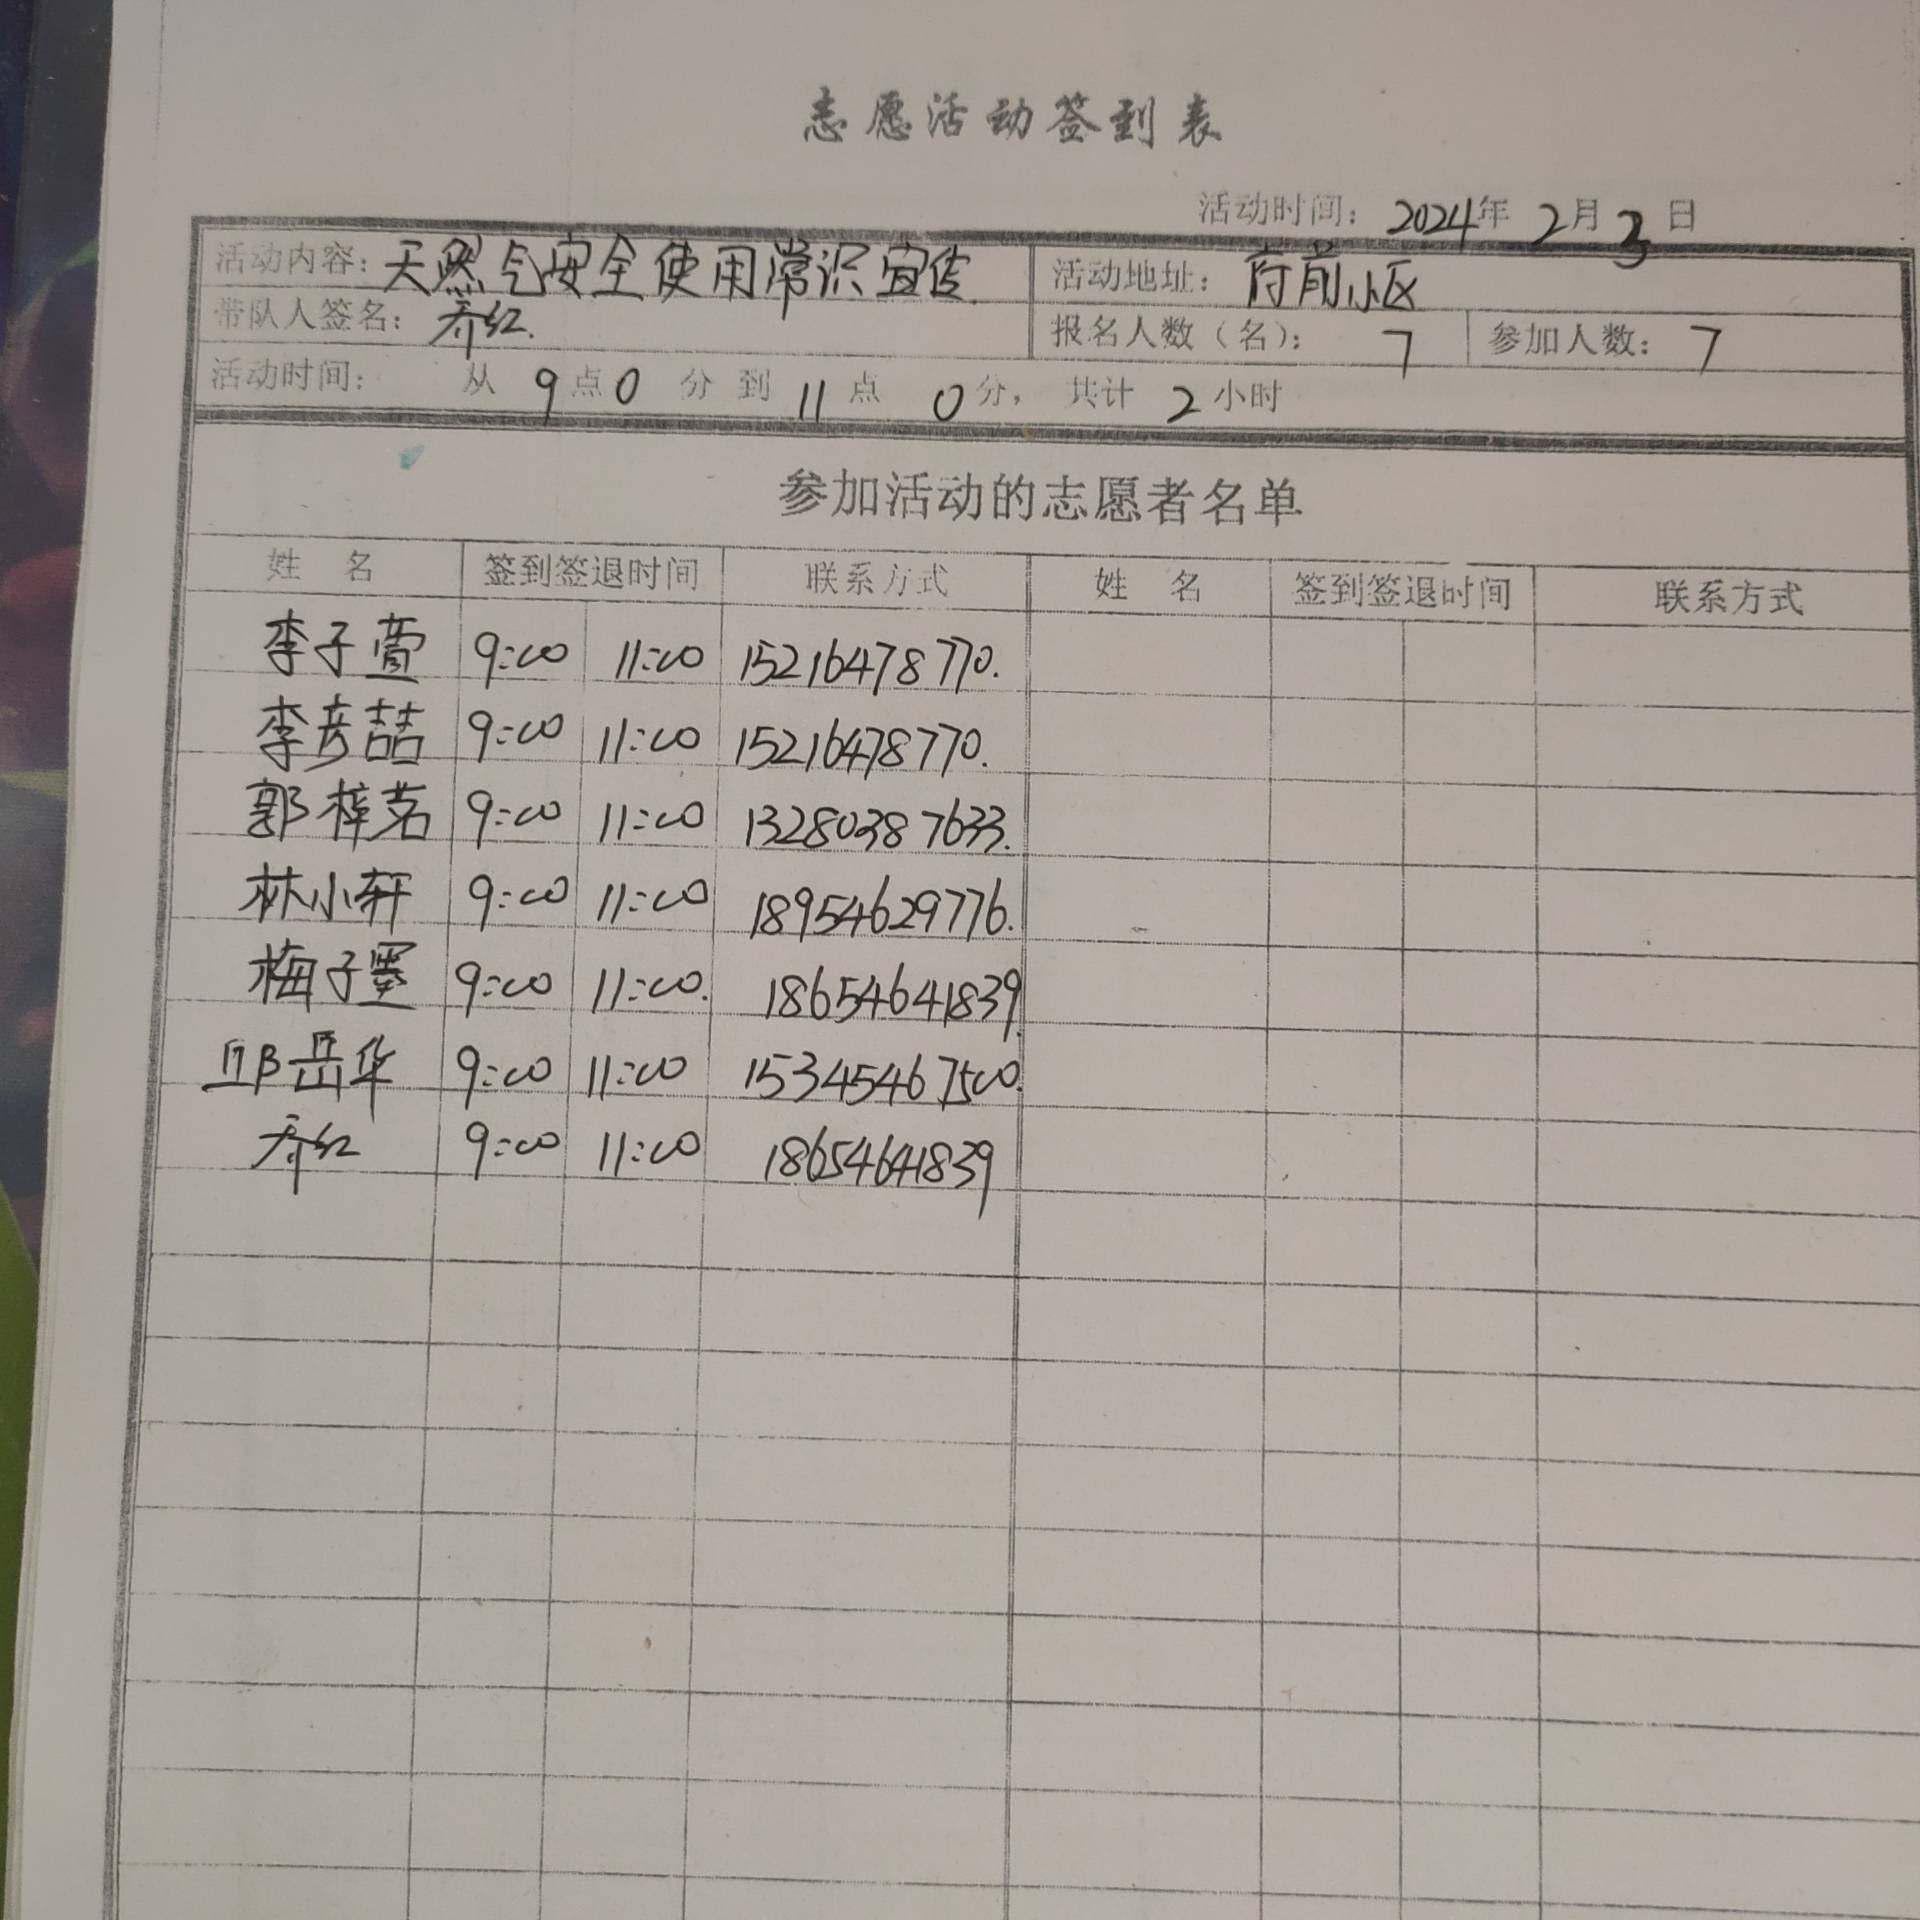 志愿活动签到表
活动时间： 2024年 2月 3 日
活动内容：天然气安全使用常识宣传. 活动地址： 府前小区
带队人签名： 乔红. 报名人数（名）： 7 参加人数： 7
活动时间： 从 9点0 分 到 11点 0分， 共计 2小时
参加活动的志愿者名单
姓 名 签到签退时间 联系方式 姓 名 签到签退时间 联系方式
李子萱 9:00 11:00 15216478770.
李彦喆 9:00 11:00 15216478770.
郭梓茗 9:00 11:00 13280387633.
林小轩 9:00 11:00 18954629776.
梅子墨 9:00 11:00. 18654641839.
邱岳华 9:00 11:00 15345467500.
乔红 9:00 11:00 18654641839